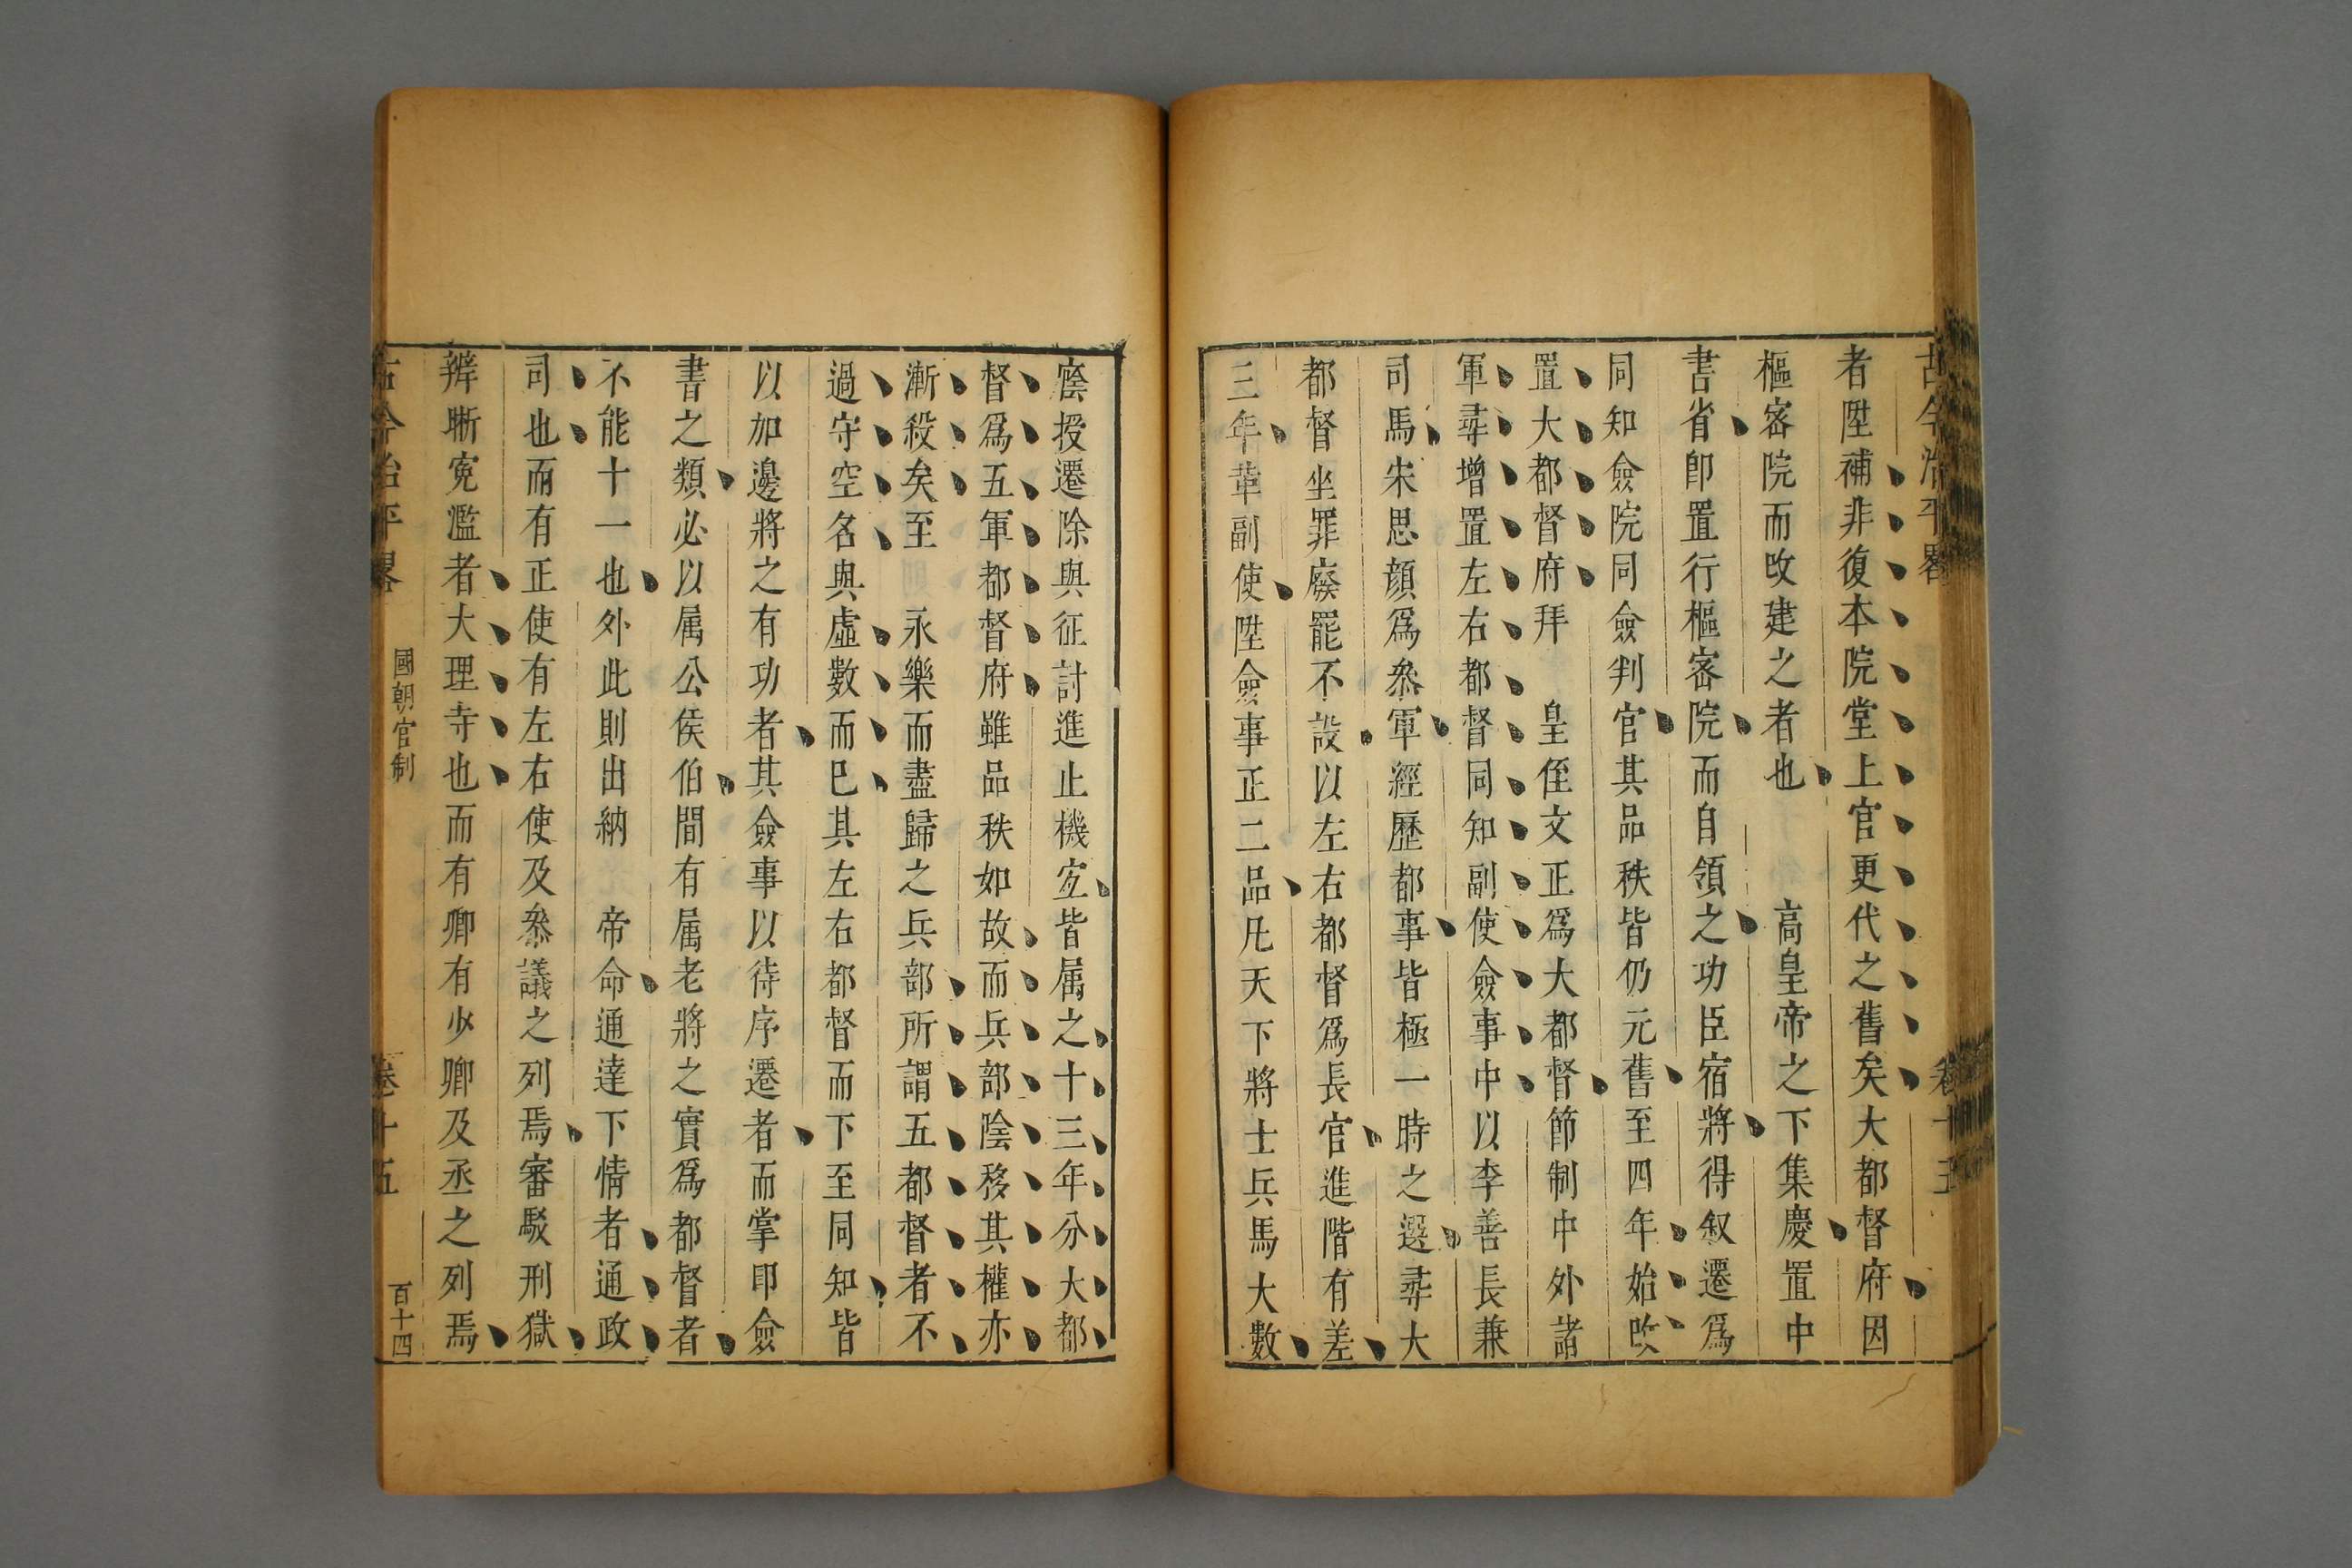 古今治平畧 卷十五
者陞補非復本院堂上官更代之舊矣大都督府因
樞密院而改建之者也 高皇帝之下集慶置中
書省卽置行樞密院而自領之功臣宿將得叙遷爲
同知僉院同僉判官其品秩皆仍元舊至四年始改
置大都督府拜 皇侄文正爲大都督節制中外諸
軍尋增置左右都督同知副使僉事中以李善長兼
司馬宋思顔爲叅軍經歷都事皆極一時之選尋大
都督坐罪廢罷不設以左右都督爲長官進階有差
三年革副使陞僉事正二品凡天下將士兵馬大數
廕授遷除與征討進止機宐皆属之十三年分大都
督爲五軍都督府雖品秩如故而兵部陰移其權亦
漸殺矣至 永樂而盡歸之兵部所謂五都督者不
過守空名與虛數而已其左右都督而下至同知皆
以加邊將之有功者其僉事以待序遷者而掌印僉
書之類必以属公侯伯間有属老將之實爲都督者
不能十一也外此則出納 帝命通達下情者通政
司也而有正使有左右使及叅議之列焉審駁刑獄
辨晰寃濫者大理寺也而有卿有少卿及丞之列焉
古今治平畧 國朝官制 卷十五 百十四